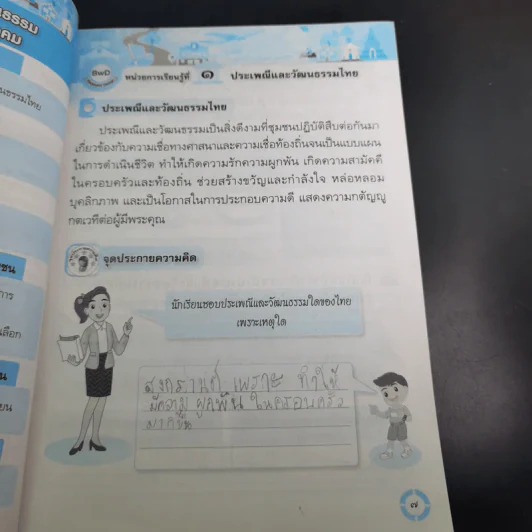 รรม
คม
นธรรมไทย
ชน
การ
เลือก
น
ยน
BwD
หน่วยการเรียนรู้ที่ ๑ ประเพณีและวัฒนธรรมไทย
ประเพณีและวัฒนธรรมไทย
ประเพณีและวัฒนธรรมเป็นสิ่งดีงามที่ชุมชนปฏิบัติสืบต่อกันมา
เกี่ยวข้องกับความเชื่อทางศาสนาและความเชื่อท้องถิ่นจนเป็นแบบแผน
ในการดำเนินชีวิต ทำให้เกิดความรักความผูกพัน เกิดความสามัคคี
ในครอบครัวและท้องถิ่น ช่วยสร้างขวัญและกำลังใจ หล่อหลอม
บุคลิกภาพ และเป็นโอกาสในการประกอบความดี แสดงความกตัญญู
กตเวทีต่อผู้มีพระคุณ
จุดประกายความคิด
นักเรียนชอบประเพณีและวัฒนธรรมใดของไทย
เพราะเหตุใด
สงกรานต์ เพราะ ทำให้
มีความ ผูกพัน ในครอบครัว
มากขึ้น
๗